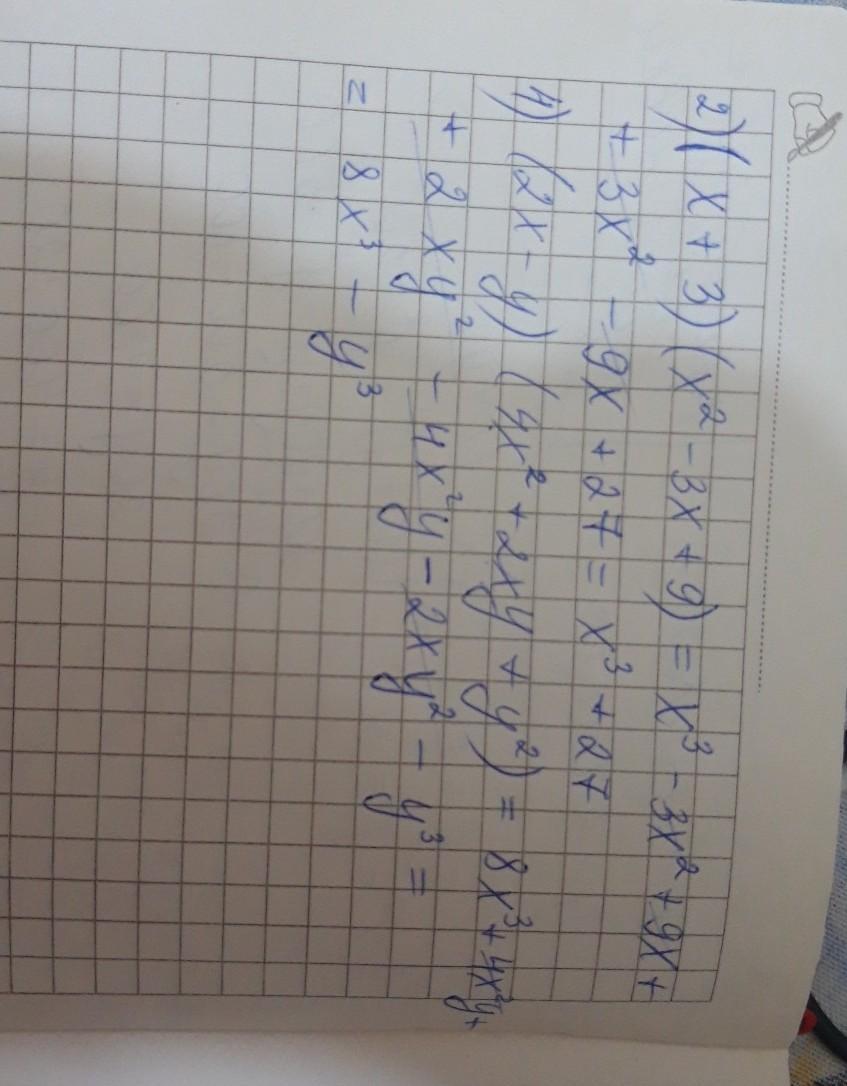 2) (x + 3)(x² - 3x + 9) = x³ - 3x² + 9x +
+ 3x² - 9x + 27 = x³ + 27
4) (2x - y) (4x² + 2xy + y²) = 8x³ + 4x²y +
+ 2xy² - 4x²y - 2xy² - y³ =
= 8x³ - y³